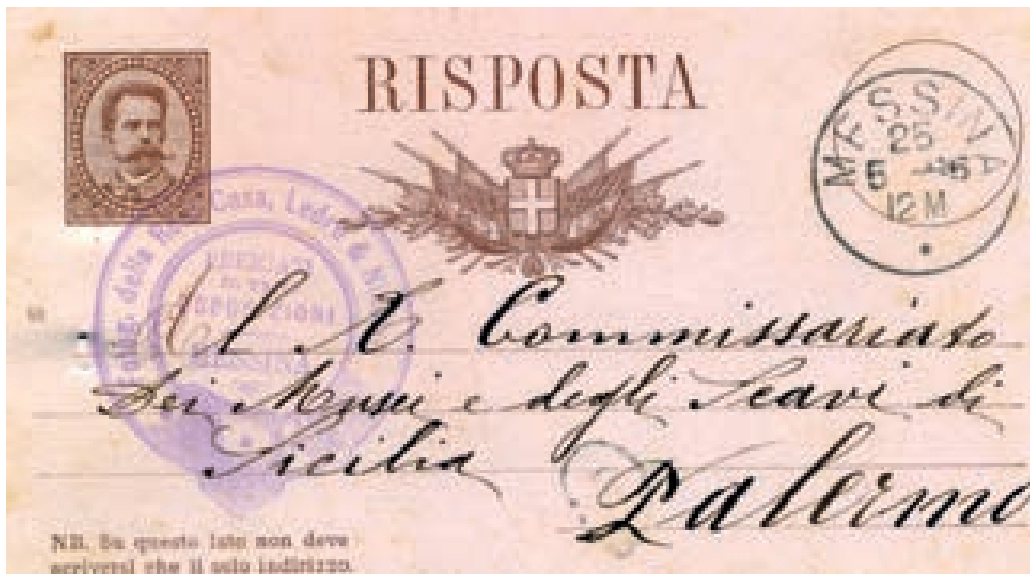 RISPOSTA
MESSINA
25
5
12 M
della
Casa, Ledri & N
PREMIATI
ESPOSIZIONI
MESSINA
Al R. Commissariato
dei Musei e degli Scavi di
Sicilia
Palermo
NB. Su questo lato non deve
scriversi che il solo indirizzo.